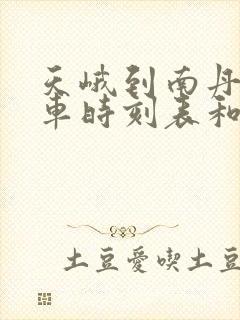 天峨到南丹
車時刻表和
土豆愛喫土豆